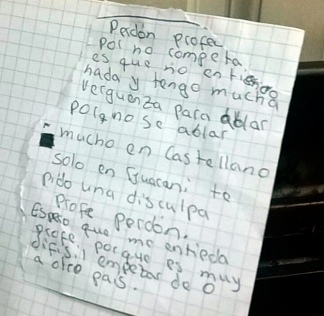 Perdón profe
por no competa.
es que no entiendo
nada y tengo mucha
verguenza para ablar
porq no se ablar
mucho en Castellano
solo en Guarani te
pido una disculpa
Profe perdón.
Espero que me entieda
profe, porque es muy
difisil empezar de 0
a otro país.